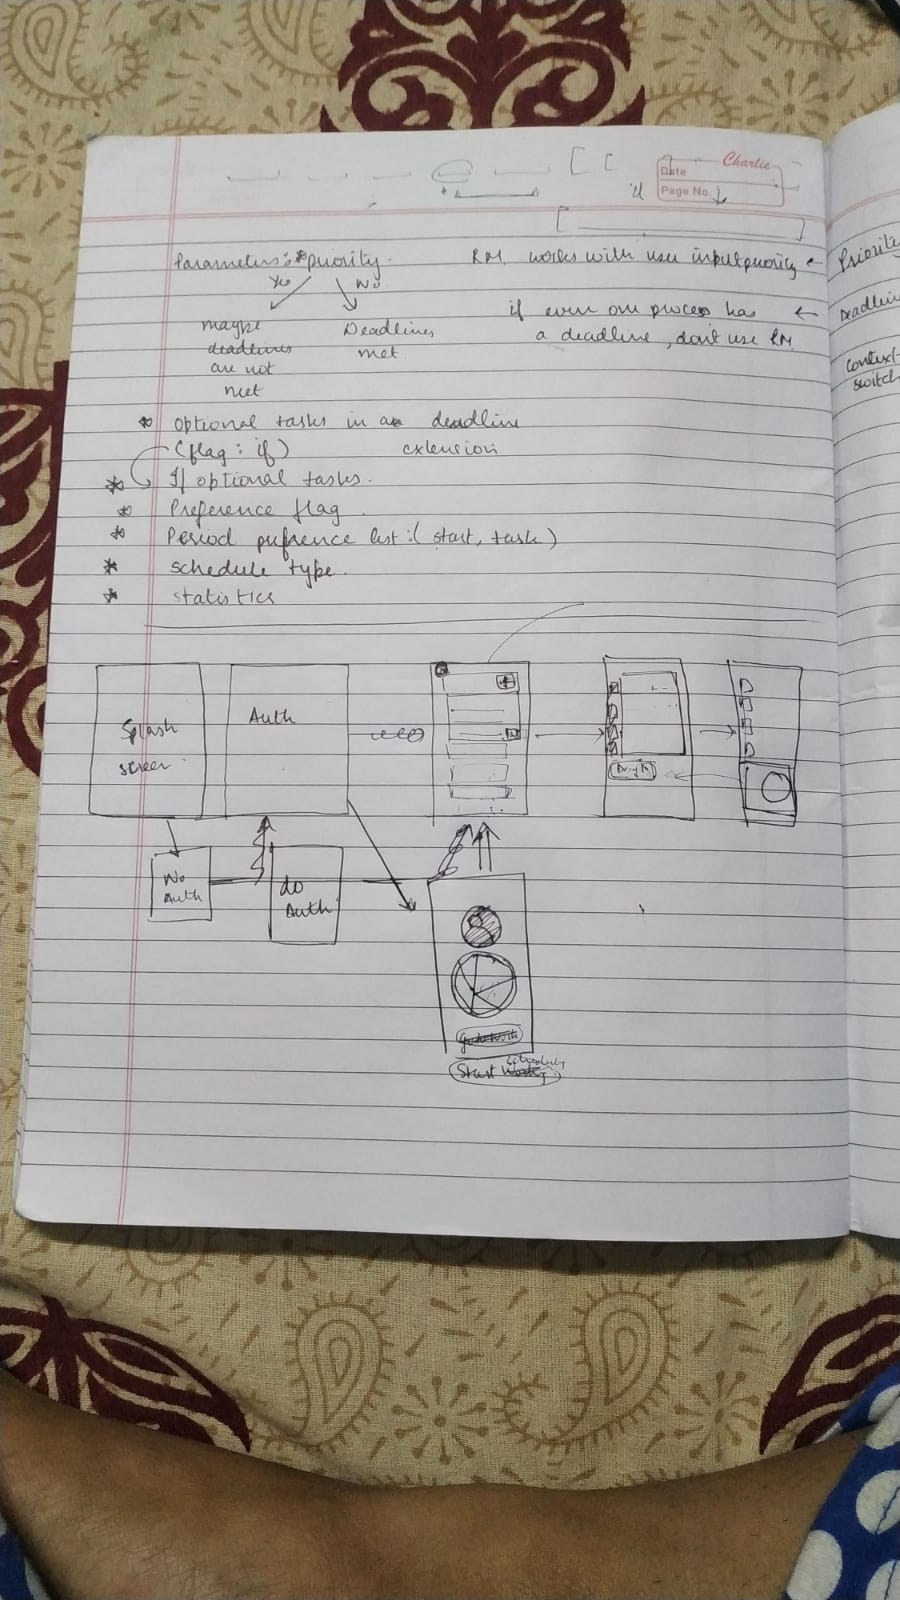 Charlie
Date
Page No.
Parameters: * priority.
Yes No
maybe
deadlines
are not
met
Deadlines
met
RM works with user input priority ←
if even one process has ←
a deadline, don't use RM
Priority
Deadline
Context
switch
* optional tasks in a deadline
(flag: if) extension
* If optional tasks.
* Preference flag
* Period prefrence list: (start, task)
* schedule type.
* statistics
Splash
screen
Auth
No
Auth
do
Auth
Start